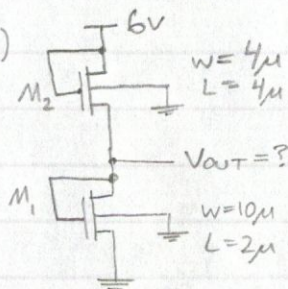 )
6V
W=4μ
L=4μ
M2
VOUT=?
M1
W=10μ
L=2μ